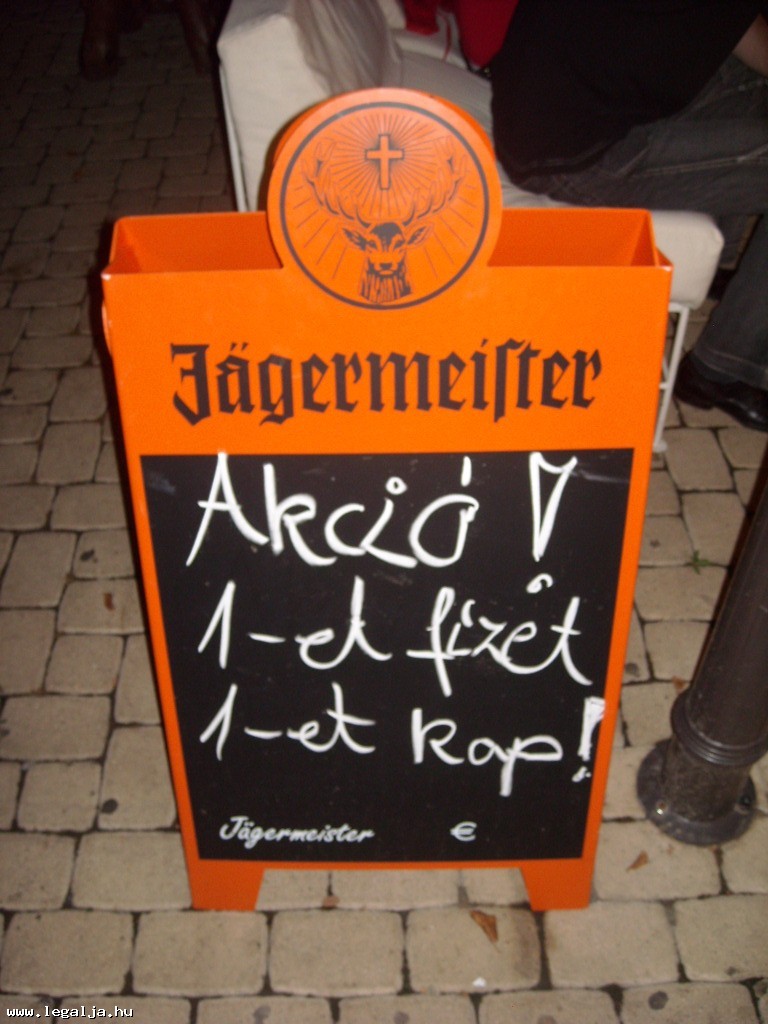 Jägermeister
Akció!
1-et fizet
1-et kap!
Jägermeister €
www.legalja.hu